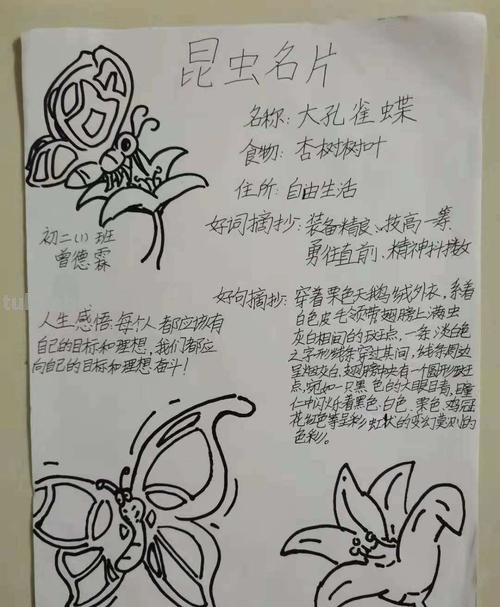 昆虫名片
名称:大孔雀蝶
食物:杏树树叶
住所:自由生活
好词摘抄:装备精良、技高一筹
勇往直前、精神抖擞
初二(1)班
曾德霖
好句摘抄:穿着栗色天鹅绒外衣,系着
白色皮毛领带翅膀上满虫
灰白相间的斑点,一条淡白色
之字形线条穿过其间,线条周边
呈烟灰白,翅膀中央有一个圆形斑
点,宛如一只黑色的大眼睛,瞳
仁中闪烁着黑色、白色、栗色、鸡冠
花红色等呈彩虹状的变幻莫测的
色彩。
人生感悟:每个人都应拥有
自己的目标和理想,我们都应
向自己的目标和理想奋斗!